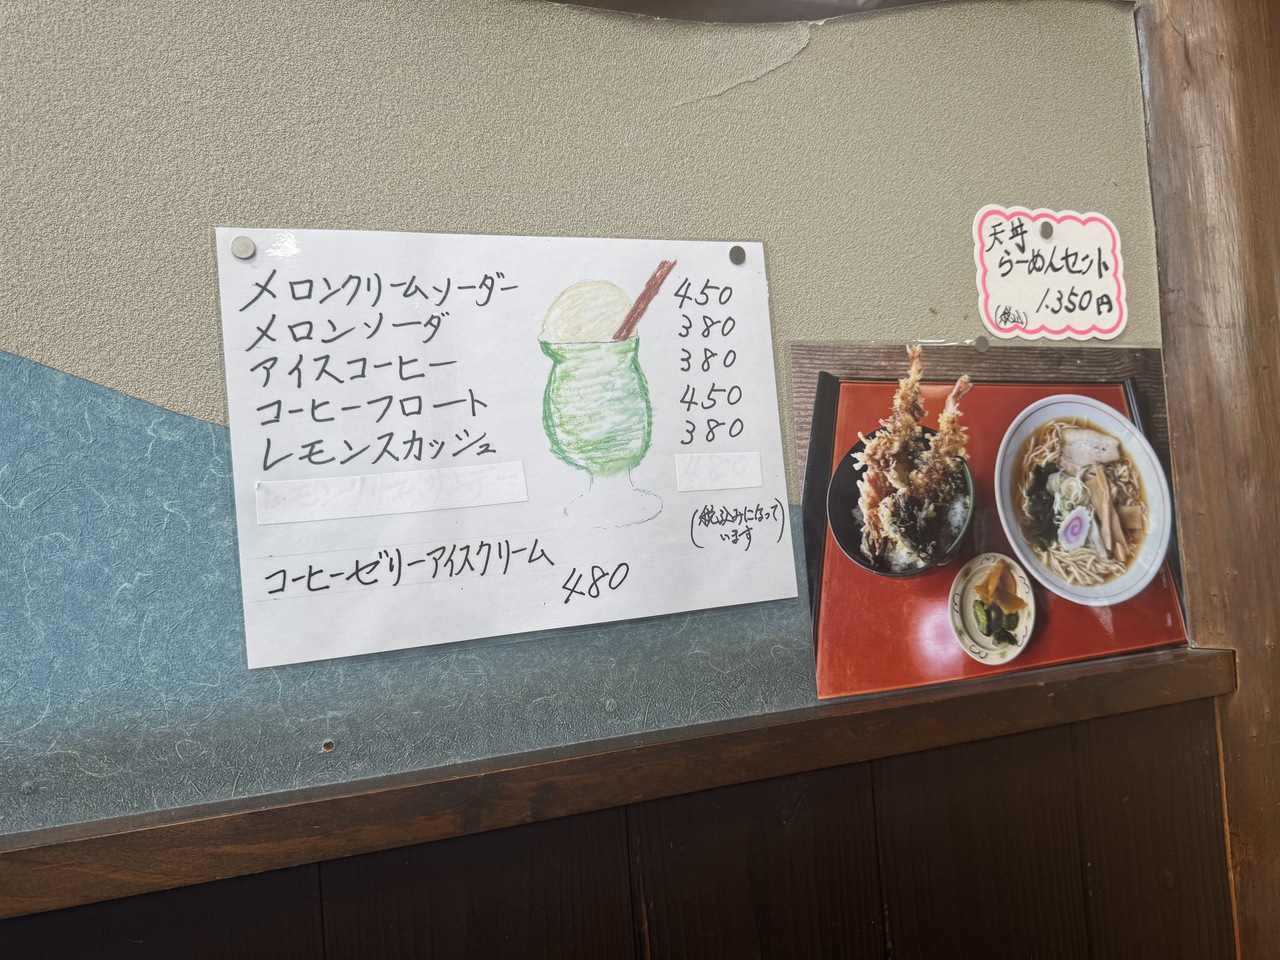 メロンクリームソーダー 450
メロンソーダ 380
アイスコーヒー 380
コーヒーフロート 450
レモンスカッシュ 380
(税込みになって
います)
コーヒーゼリーアイスクリーム 480
天丼
らーめんセット
(税込) 1.350円